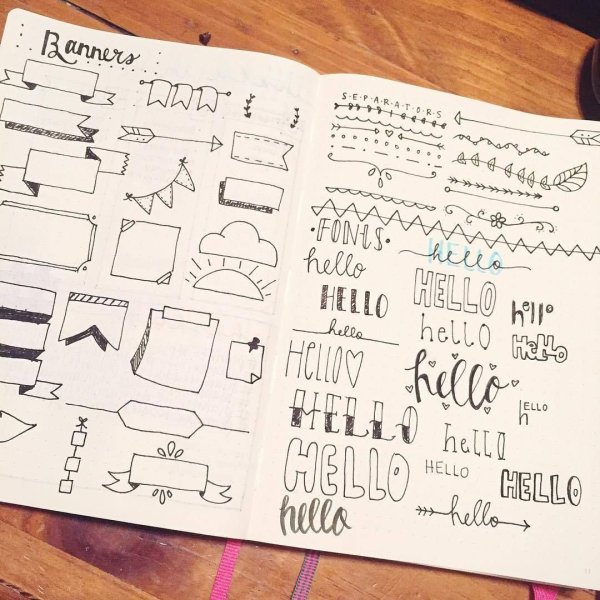 Banners
SEPARATORS
FONTS
HELLO
hello
hello
HELLO
HELLO
hello
hello
hello
Hello
HELLO
hello
HELLO
hELLO
hello
HELLO
HELLO
HELLO
hello
hello
11